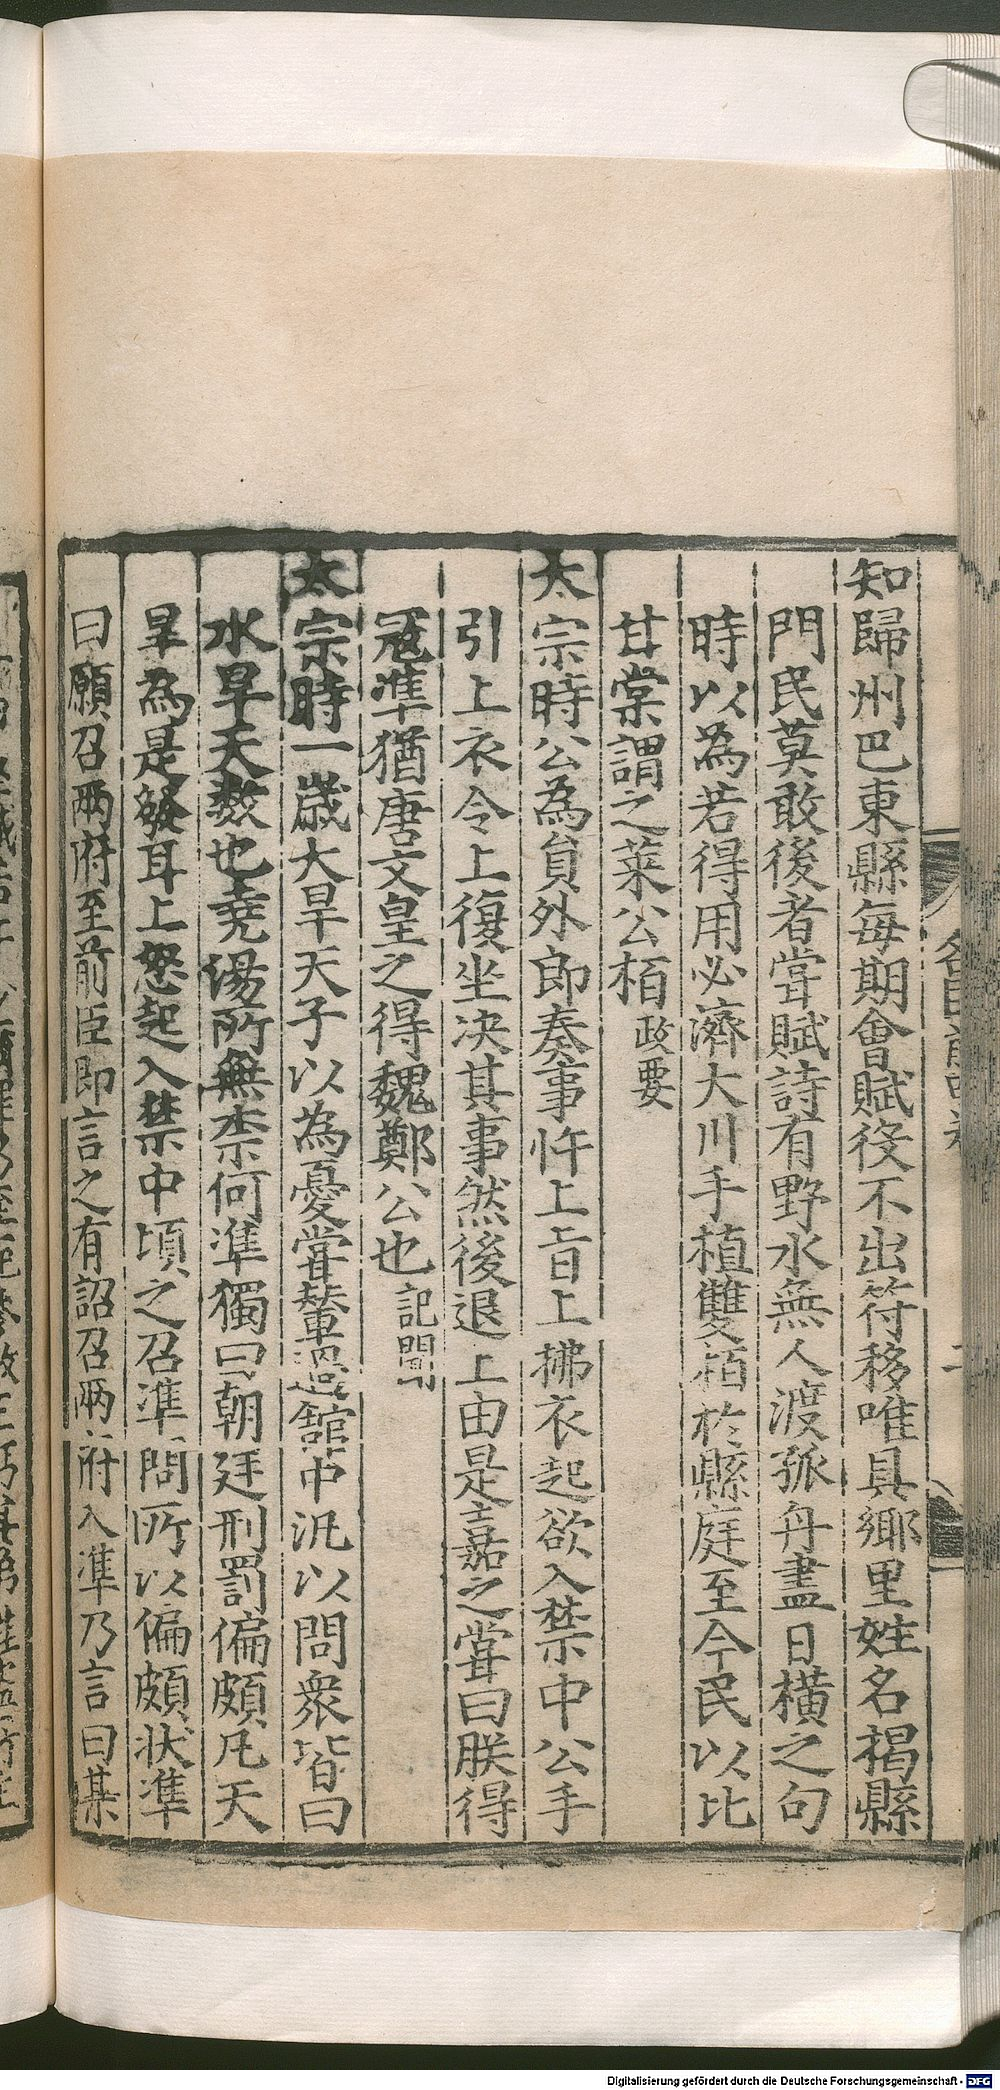 知歸州巴東縣每期會賦役不出符移唯具鄉里姓名揭縣
門民莫敢後者甞賦詩有野水無人渡孤舟盡日橫之句
時以為若得用必濟大川手植雙栢於縣庭至今民以比
甘棠謂之萊公栢政要
太宗時公為貟外郎奏事忤上旨上拂衣起欲入禁中公手
引上衣令上復坐决其事然後退上由是嘉之甞曰朕得
冦準猶唐文皇之得魏鄭公也記聞
太宗時一歲大旱天子以為憂甞輦過舘中汎以問衆皆曰
水旱天數也堯湯所無柰何準獨曰朝廷刑罰偏頗凡天
旱為是發耳上怒起入禁中頃之召準問所以偏頗狀準
曰願召兩府至前臣即言之有詔召兩府入準乃言曰某
Digitalisierung gefördert durch die Deutsche Forschungsgemeinschaft - DFG